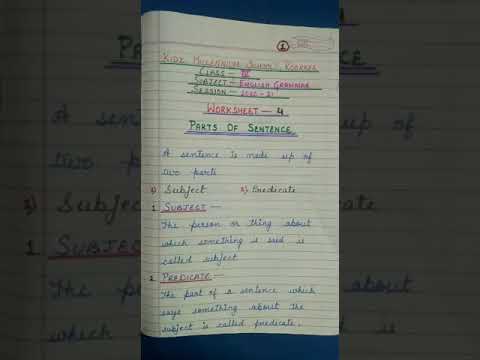 1
KIDZ MILLENNIUM SCHOOL, KOARKEE
CLASS - III
SUBJECT - ENGLISH GRAMMAR
SESSION - 2020-21
WORKSHEET - 4
PARTS OF SENTENCE
A sentence is made up of
two parts
1) Subject 2) Predicate
1 SUBJECT —
The person or thing about
which something is said is
called subject
2 PREDICATE —
The part of a sentence which
says something about the
subject is called predicate.